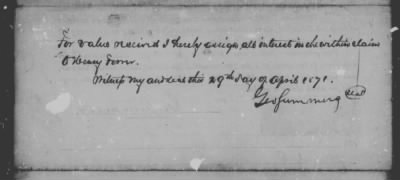 For value received I hereby assign all interest in the within claim
to Henry
Witness my and seal this 29th day of April 1871.
Geo Cummins seal